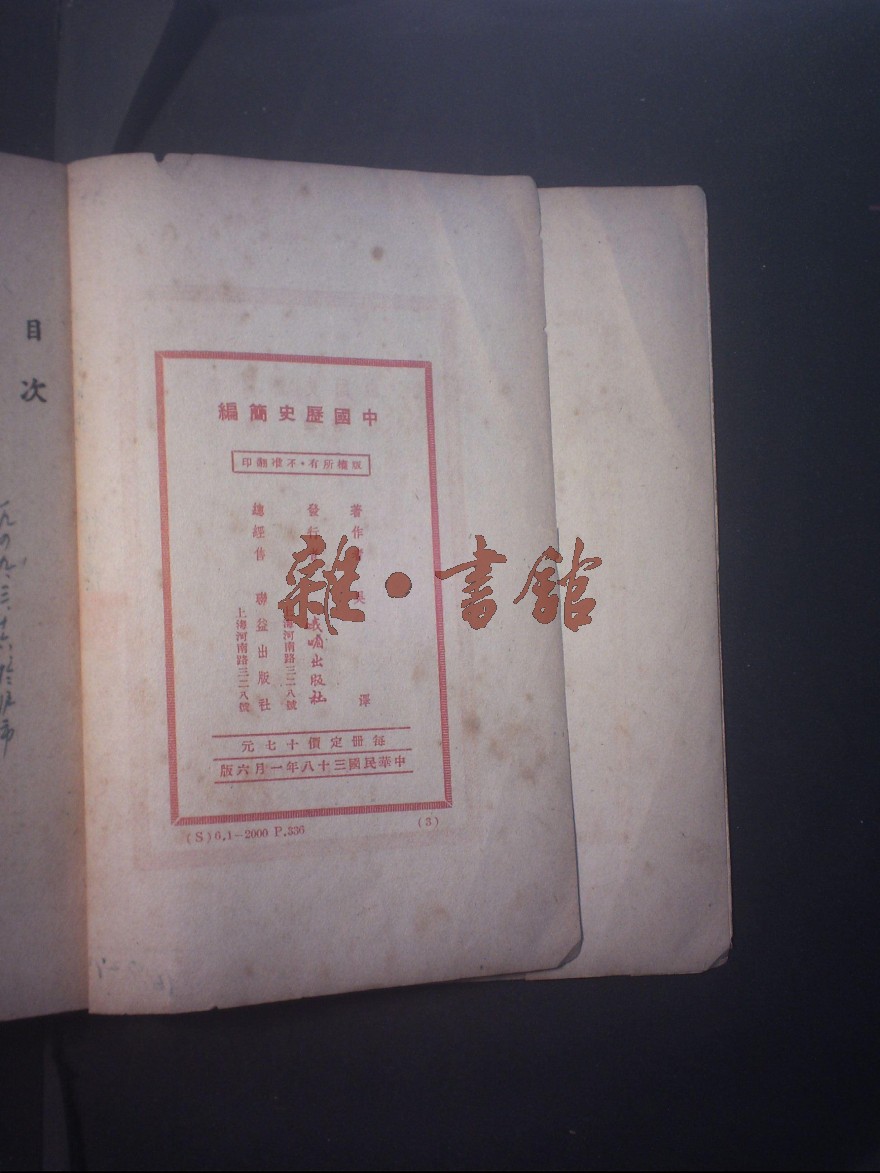 目次
中國歷史簡編
版權所有・不准翻印
著作者 吳澤
發行 峨嵋出版社
上海河南路三二八號
總經售 聯益出版社
上海河南路三二八號
每冊定價十七元
中華民國三十八年一月六版
(S)6.1—2000 P.336
(3)
雜・書館
一九四九.三.